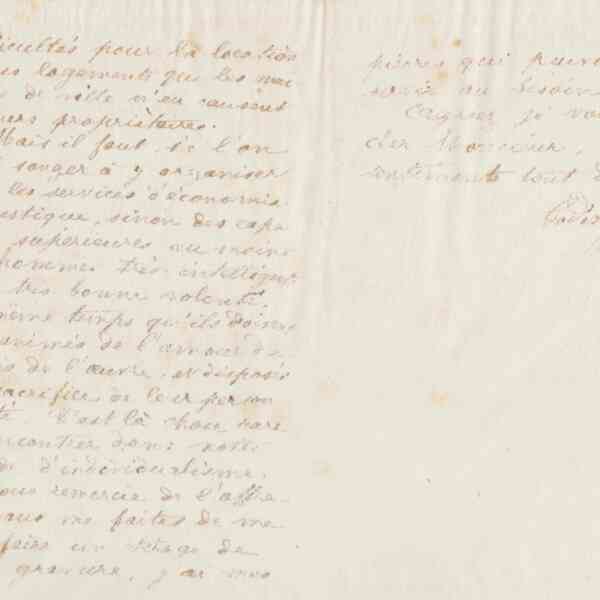 ficultés pour la location
logements que les mai
de ville n'en causent
propriétaires.
Mais il faut, si l'on
songer à y organiser
les services d'économie
estique, sinon des capa
supérieures au moins
hommes très intelligents
très bonne volonté.
même temps qu'ils soient
animés de l'amour de
de l'œuvre, et disposés
sacrifice de leur person
C'est là chose rare
encontrer dans notre
d'individualisme.
vous remercie de l'offre
vous me faites de me
faire un tirage de
gravure, j'ai mes
pierres qui
servir au besoin
Agréez, je vous
cher Monsieur,
sentiments tout
Godin